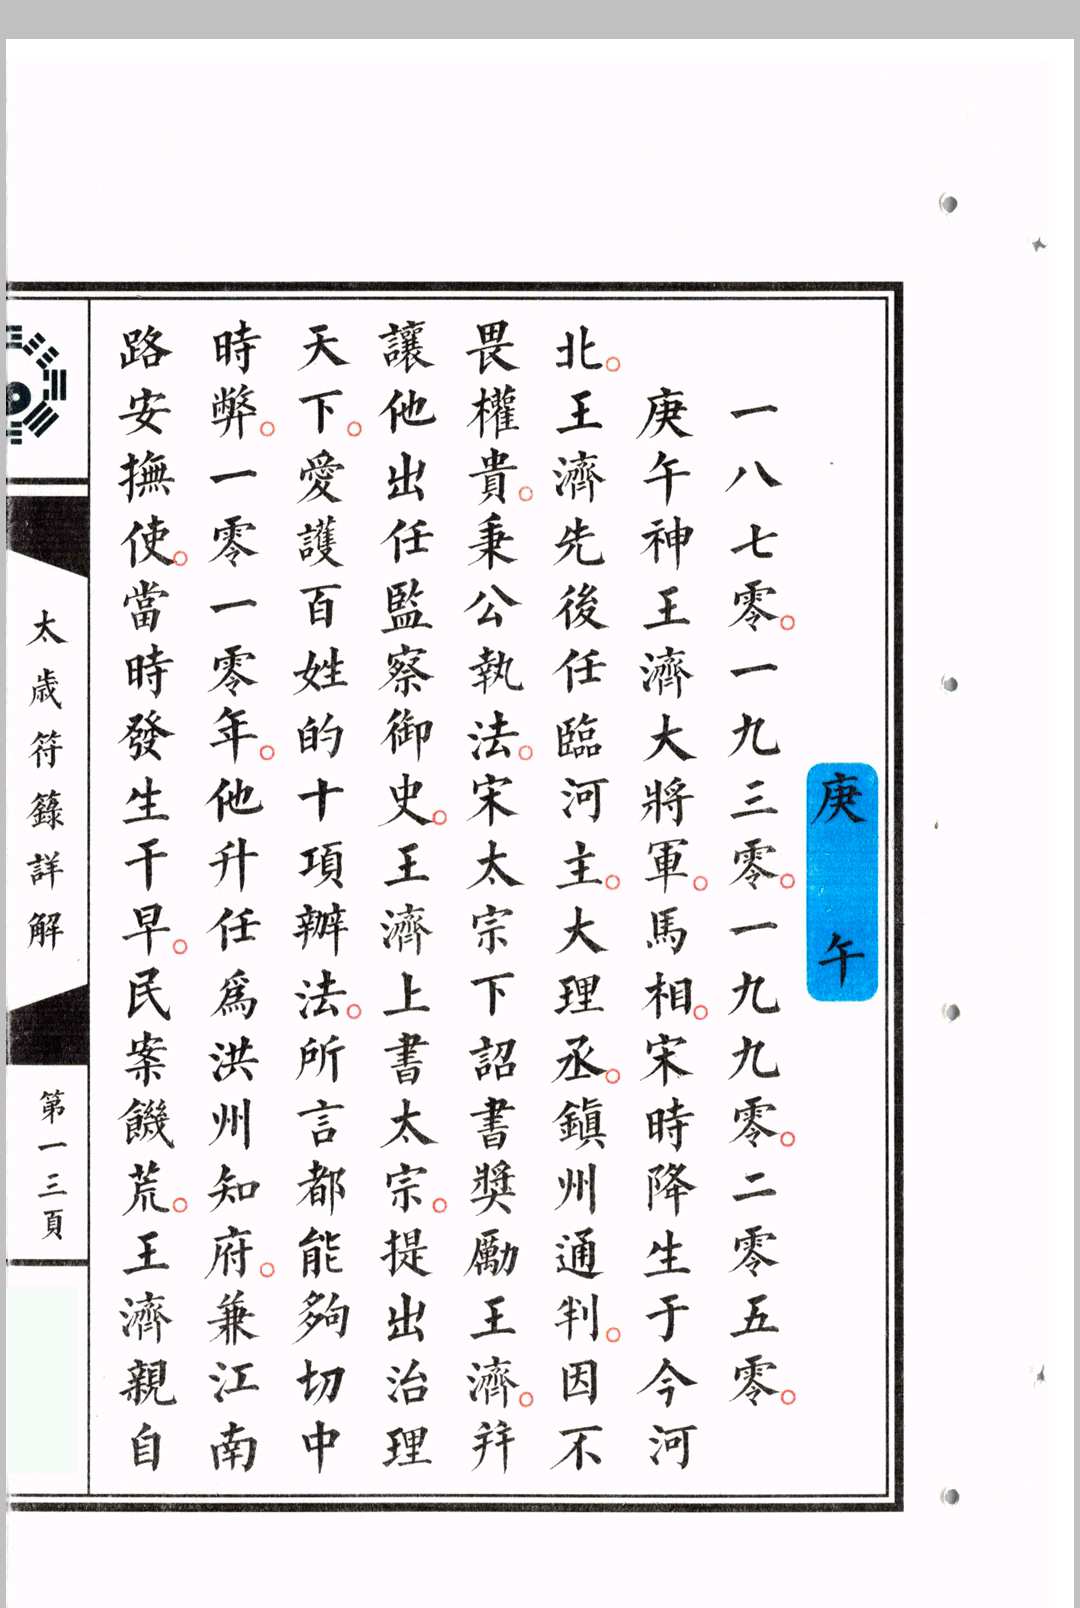 庚午
一八七零。一九三零。一九九零。二零五零。
庚午神王濟大將軍。馬相。宋時降生于今河
北。王濟先後任臨河主。大理丞。鎮州通判。因不
畏權貴。秉公執法。宋太宗下詔書獎勵王濟。幷
讓他出任監察御史。王濟上書太宗。提出治理
天下。愛護百姓的十項辦法。所言都能夠切中
時弊。一零一零年。他升任爲洪州知府。兼江南
路安撫使。當時發生干早。民案饑荒。王濟親自
太歲符籙詳解
第一三頁